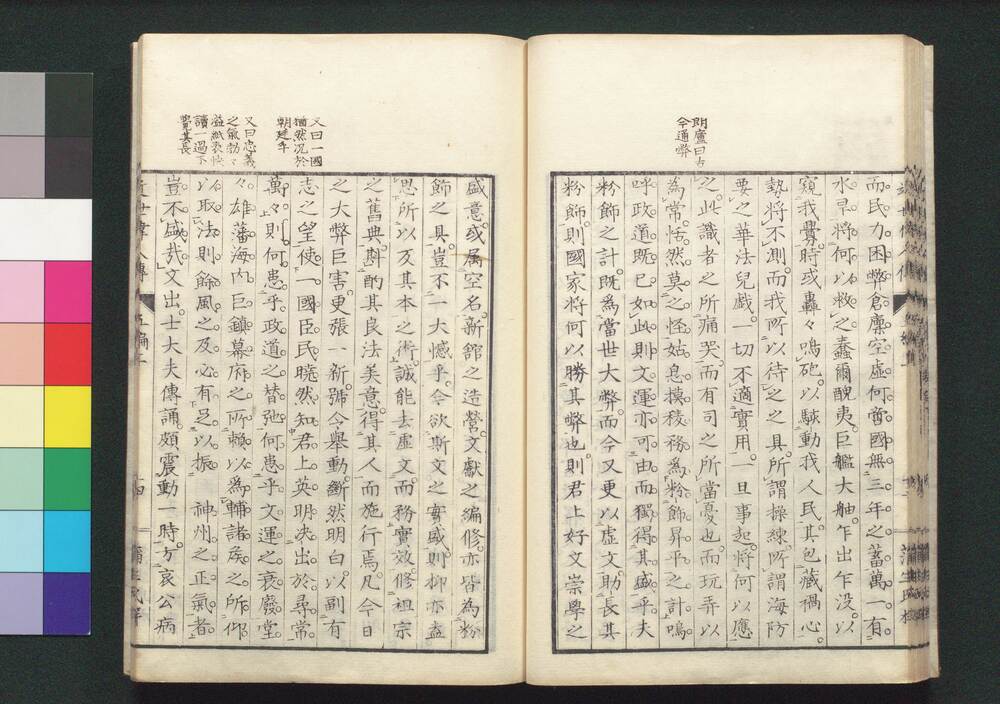 朗廬曰古
今通弊
而民力困弊倉廩空虛何啻國無三年之蓄萬一有
水旱將何以救之蠢爾醜夷巨艦大舶乍出乍没以
窺我釁時或轟々鳴砲以駭動我人民其包藏禍心
勢將不測而我所以待之之具所謂操練所謂海防
要之華法兒戲一切不適實用一旦事起將何以應
之此識者之所痛哭而有司之所當憂也而玩弄以
為常恬然莫之怪姑息摸稜務為粉飾昇平之計嗚
呼政道既已如此則文運亦可由而獨得其盛乎夫
粉飾之計既為當世大弊而今又更以虛文助長其
粉飾則國家將何以勝其弊也則君上好文崇學之
又曰一國
猶然況於
朝廷乎
又曰忠義
之氣勃々
溢紙表快
讀一過不
覺其長
盛意或屬空名新館之造營文獻之編修亦皆為粉
飾之具豈不一大憾乎今欲斯文之實盛則抑亦盍
思所以反其本之術誠能去虛文而務實效修祖宗
之舊典斟酌其良法美意得其人而施行焉凡今日
之大弊巨害更張一新號令舉動斷然明白以副有
志之望使一國臣民曉然知君上英明决出於尋常
萬々則何患乎政道之替弛何患乎文運之衰廢堂
々雄藩海内巨鎮幕府之所賴以為輔諸矦之所仰
以取法則餘風之及必有足以振 神州之正氣者
豈不盛哉文出士大夫傳誦頗震動一時方哀公病
近世偉人傳 五編下 十四 蒲生氏梓